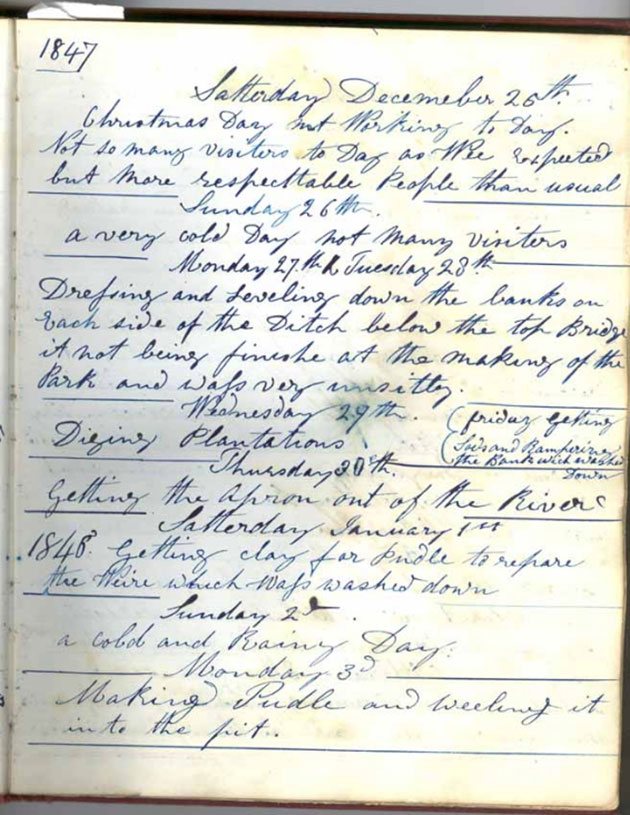 1847
Satterday Decemeber 25th.
Christmas Day not Working to Day.
Not so many visiters to Day as Wee Expected
but More respecttable People than usual
Sunday 26th.
a very cold Day not many visiters
Monday 27th & Tuesday 28th
Dressing and Leveling down the banks on
Each side of the Ditch below the top Bridge
it not being finishe at the making of the
Park and wass very unsitly.
Wednesday 29th. (friday Getting
Diging Plantations (Sods and Ramering
the Banks wich washed
Down
Thursday 30th.
Getting the Apron out of the River
Satterday January 1st
1848. Getting clay for Pudle to repare
the Weire which Wass washed down
Sunday 2d.
a cold and Rainy Day.
Monday 3d
Making Pudle and weeling it
into the pit..